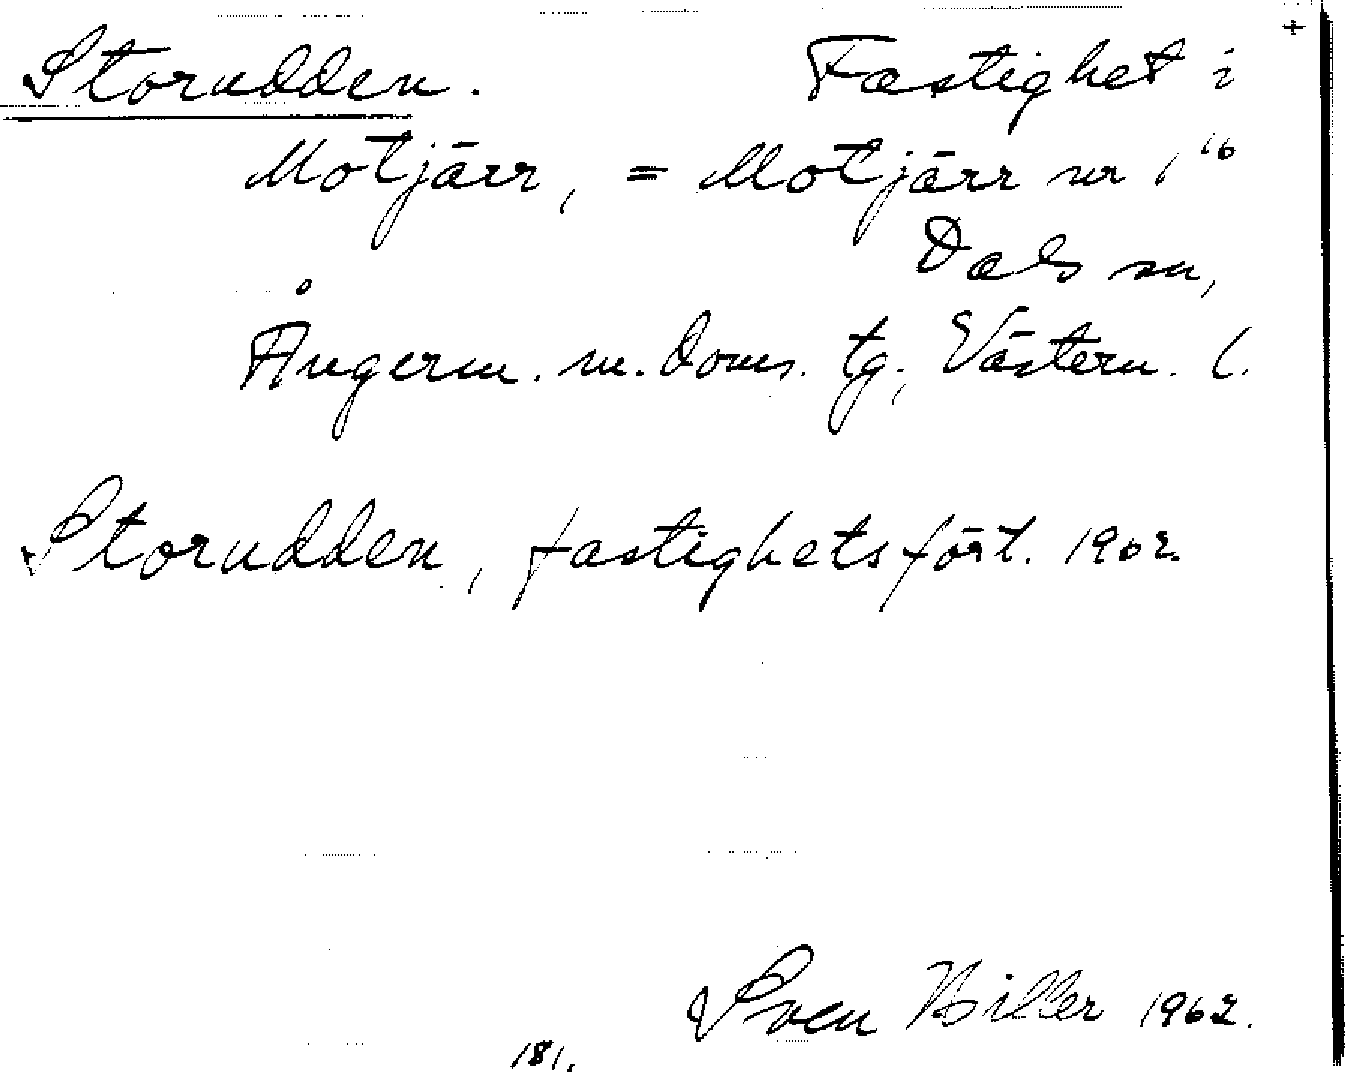 Storudden. Fastighet i
Motjärr, = Motjärr nr 1 16
Dals sn,
Ångerm. m. doms. tg., Västern. l.
Storudden, fastighetsfört. 1962.
Sven Hiller 1962.
181.